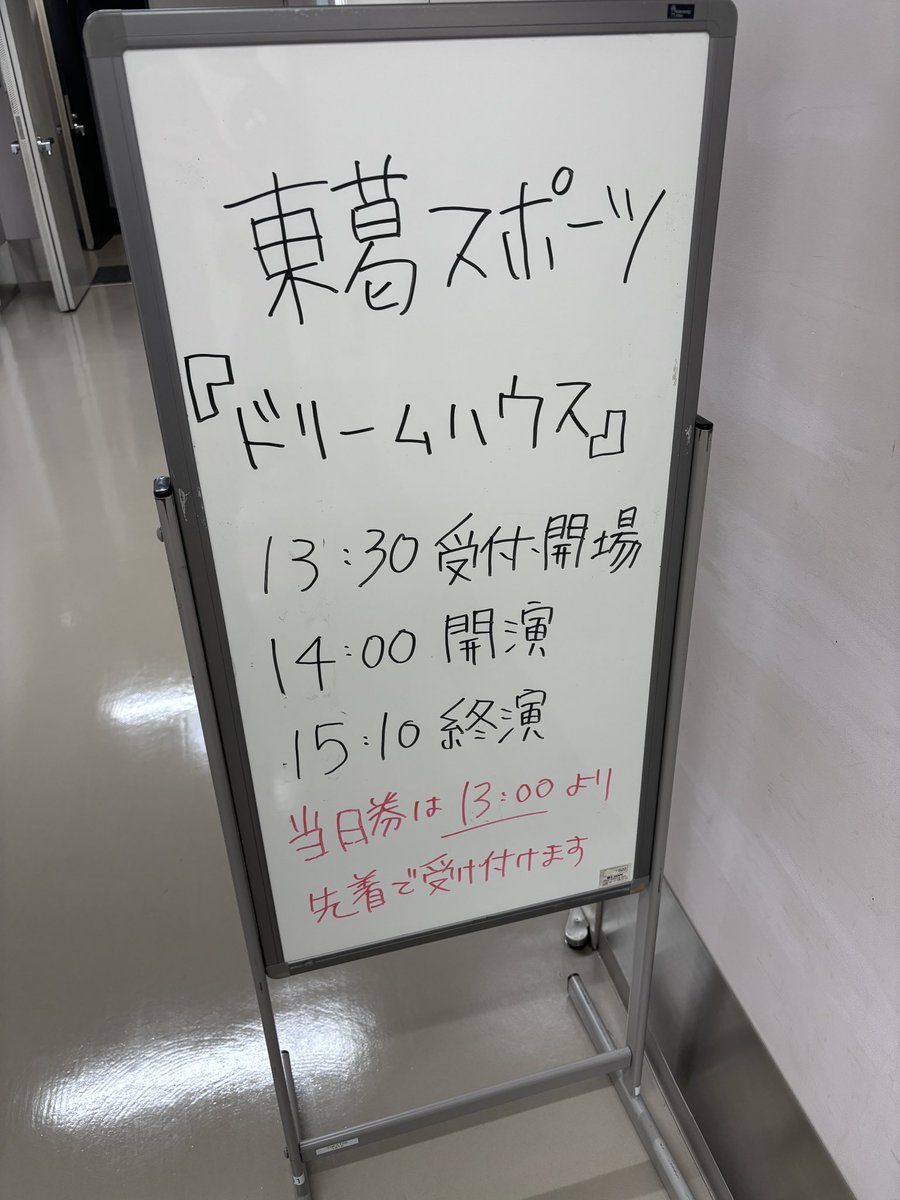 東葛スポーツ
『ドリームハウス』
13:30 受付・開場
14:00 開演
15:10 終演
当日券は 13:00 より
先着で受け付けます